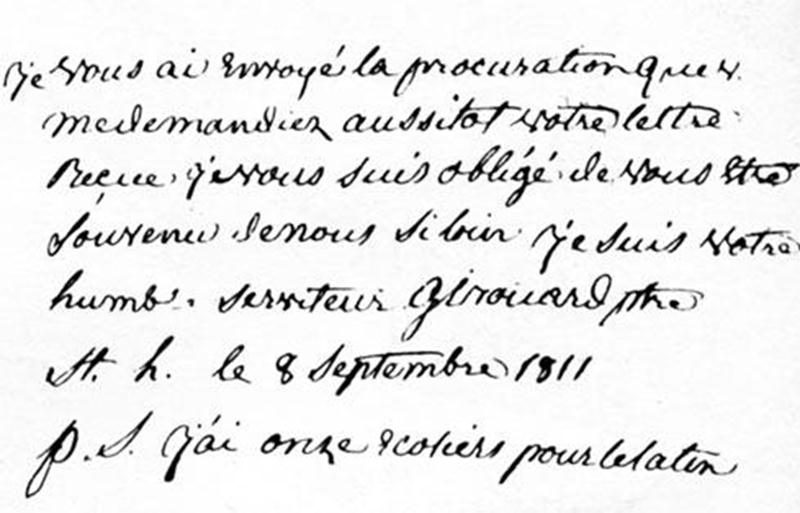 je vous ai Envoyé la procuration que v.
me demandiez aussitot votre lettre
Reçue, je vous suis obligé de vous Etre
souvenu de nous si loin je suis votre
humb. serviteur Girouard ptre
St. h. le 8 septembre 1811
p. S. j'ai onze Ecoliers pour le latin